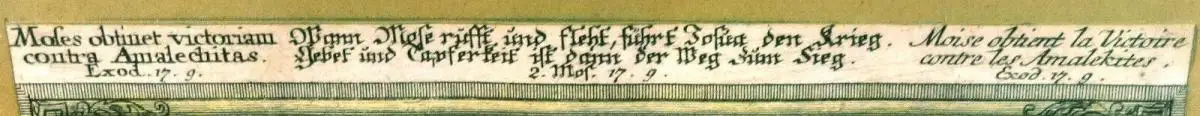 Moses obtinet victoriam
contra Amalechitas.
Exod. 17. 9.
Wann Mose rüfft und fleht, führt Josua den Krieg.
Gebet und Tapferkeit ist dann der Weg zum Sieg.
2. Mos. 17. 9.
Moise obtient la Victoire
contre les Amalekites.
Exod. 17. 9.